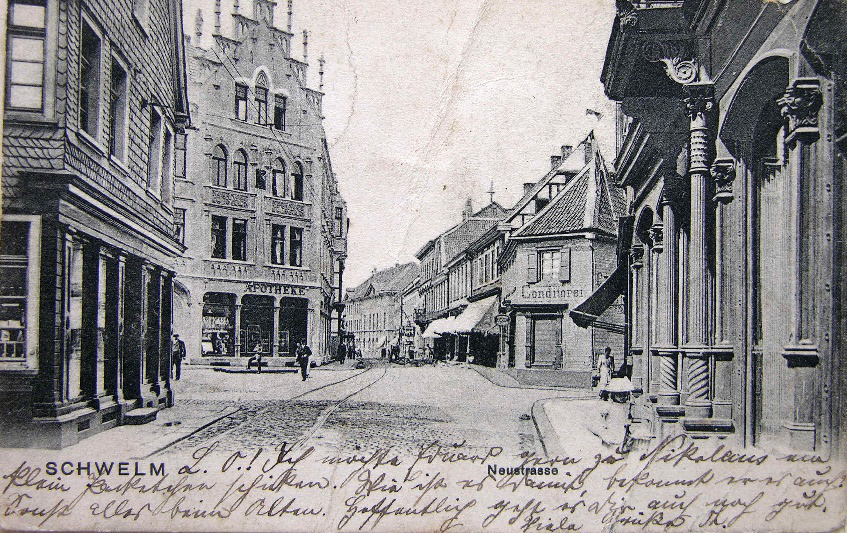 APOTHEKE
Conditorei
SCHWELM
Neustrasse
L. O.! Ich möchte Eduard gern zu Nikolaus ein
klein Paketchen schicken. Wie ist es damit, bekommt er es auch?
Sonst alles beim Alten. Hoffentlich geht es Dir auch noch gut.
Viele Grüße